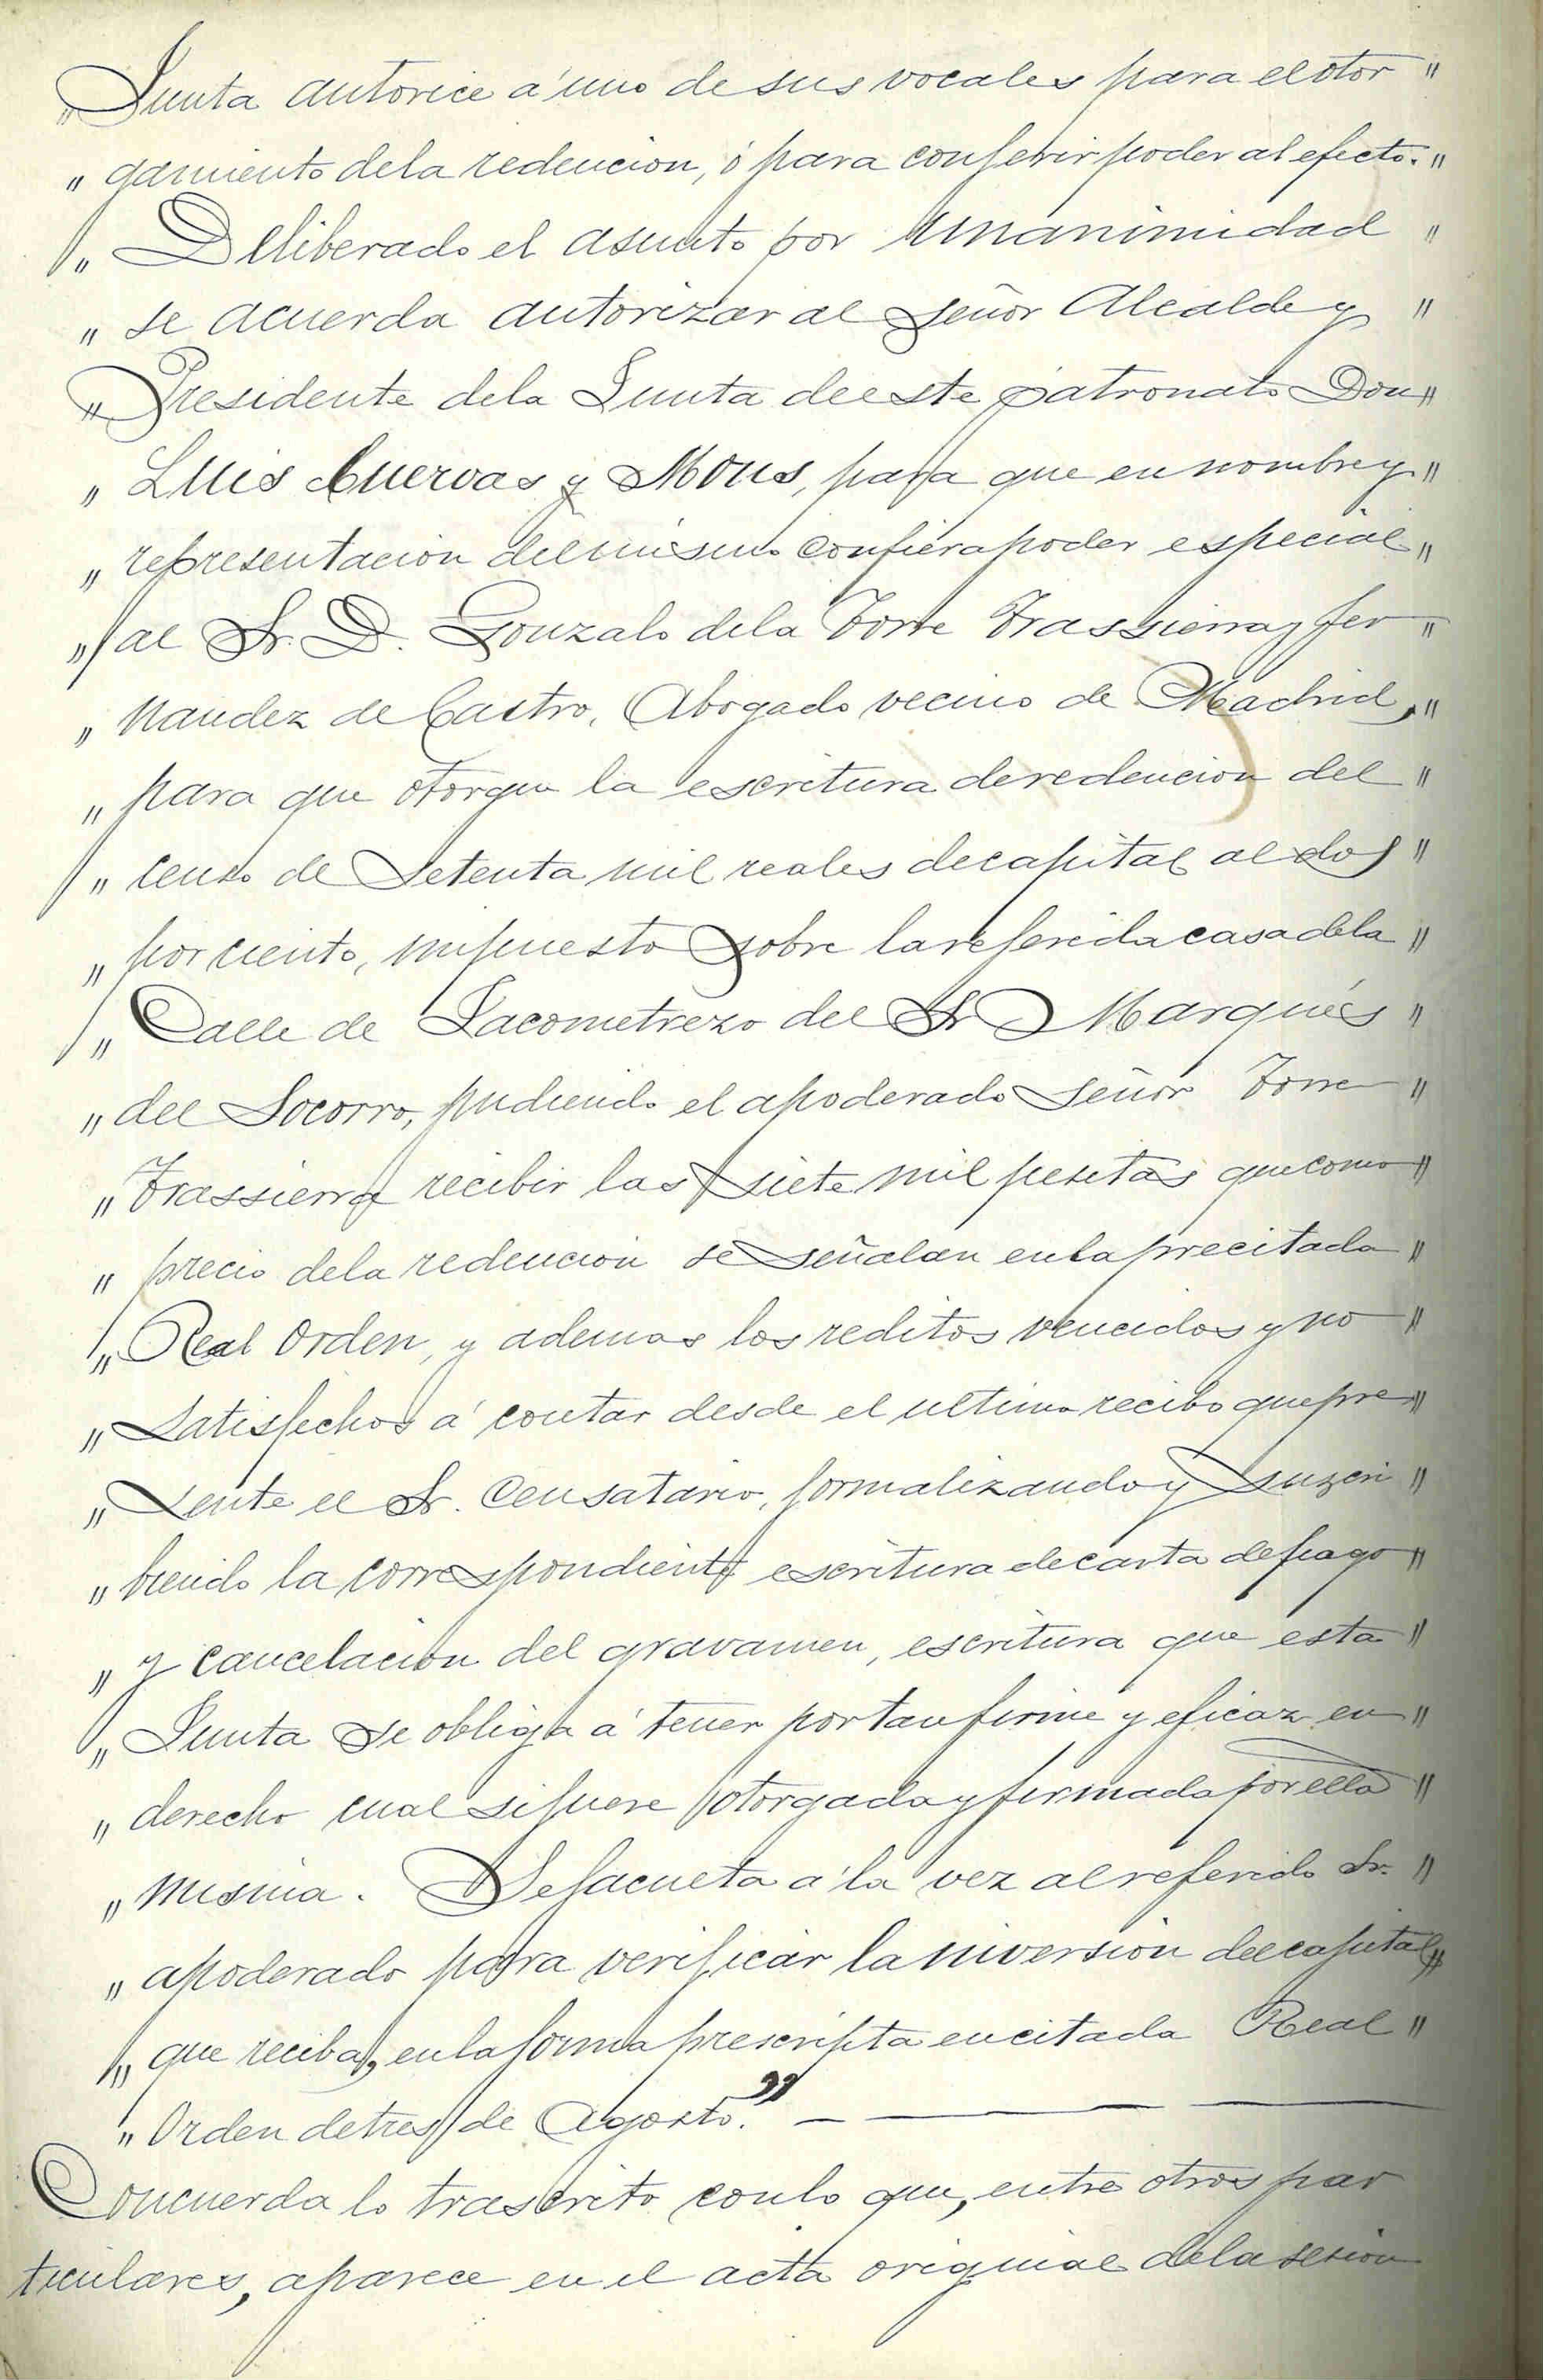 "Junta autorice á uno de sus vocales para el otor"
"gamiento de la redencion, ó para conferir poder al efecto."
"Deliberado el asunto por unanimidad"
"se acuerda autorizar al Señor Alcalde y"
"Presidente de la Junta de este patronato Don"
"Luis Cuervas y Mons, para que en nombre y"
"representacion del mismo confiera poder especial"
"al Sr. D. Gonzalo de la Torre Trassierra y Fer"
"nandez de Castro, Abogado vecino de Madrid,"
"para que otorgue la escritura de redencion del"
"censo de Setenta mil reales de capital al dos"
"por ciento, impuesto sobre la referida casa de la"
"Calle de Jacometrezo del Sr Marqués"
"del Socorro, pudiendo el apoderado Señor Torre"
"Trassierra recibir las siete mil pesetas que como"
"precio de la redencion se señalan en la precitada"
"Real Orden, y ademas los reditos vencidos y no"
"Satisfechos á contar desde el ultimo recibo que pre"
"sente el Sr. Censatario, formalizando y suscri"
"biendo la correspondiente escritura de carta de pago"
"y cancelacion del gravamen, escritura que esta"
"Junta se obliga á tener por tan firme y eficaz en"
"derecho cual si fuere otorgada y firmada por ella"
"misma. Se faculta á la vez al referido Sr."
"apoderado para verificar la inversion del capital"
"que reciba, en la forma prescripta en citada Real"
"Orden de tres de Agosto."
Concuerda lo trascrito con lo que, entre otros par
ticulares, aparece en el acta original de la sesion